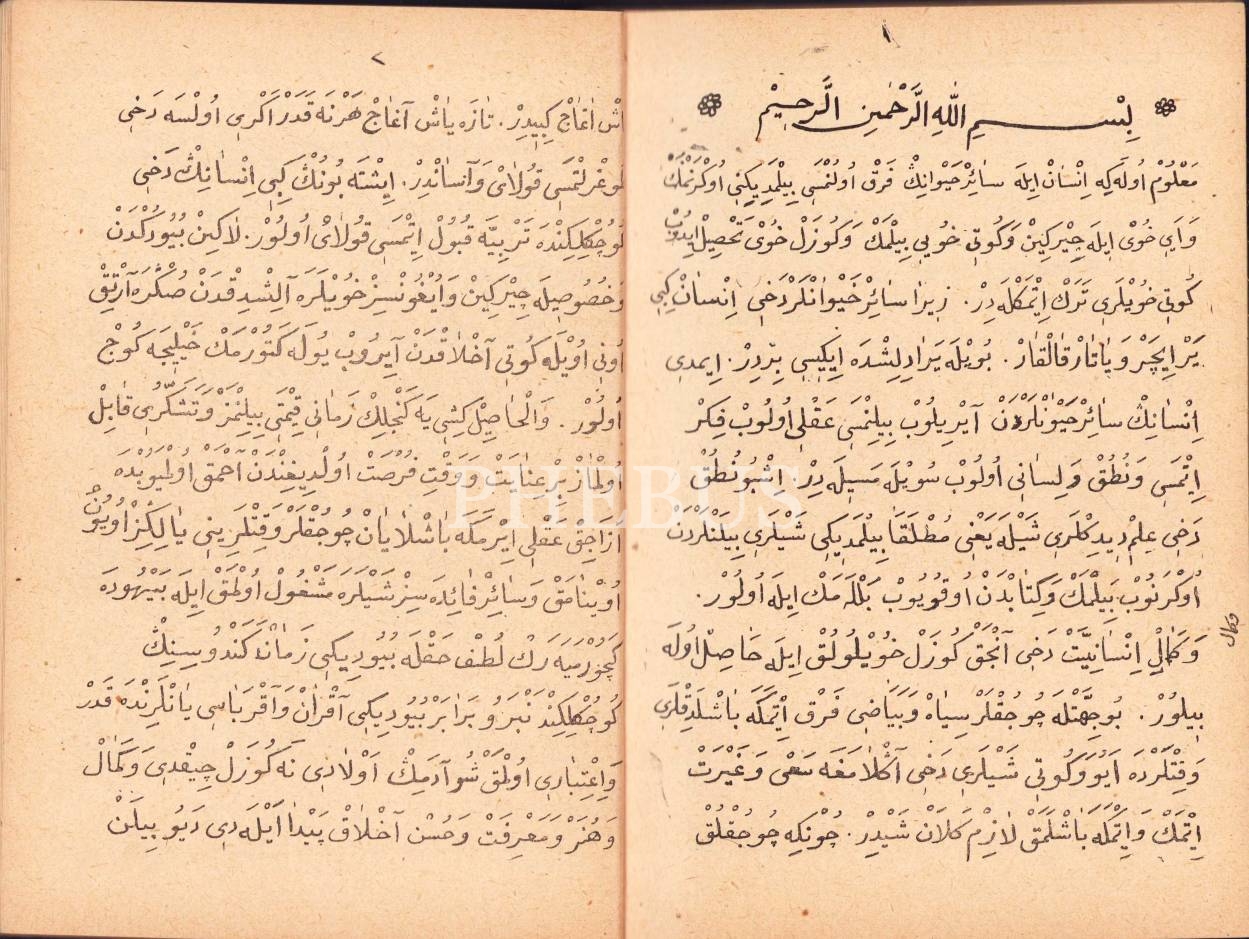 بِسْمِ اللهِ الرَّحْمٰنِ الرَّحِيْمْ
مَعْلُومْ اُولَه كِه اِنْسَانْ اِيلَه سَائِرْ حَيْوَانِكْ فَرْقْ اُولُنْمَسِى بِيلْمَدِيكِنِى اُوكْرَنْمَكْ
وَاَيِى خُوىْ اِيلَه چِيرْكِينْ وَكُوتِى خُويِى بِيلْمَكْ وَكُوزَلْ خُوىْ تَحْصِيلْ اِيدُوبْ
كُوتِى خُويْلَرِى تَرْكْ اِتْمَكْلَه دِرْ. زِيرَا سَائِرْ حَيْوَانْلَرْ دَخِى اِنْسَانْ كِبِى
يَرْ اِيچَرْ وَيَاتَارْ قَالْقَارْ. بُويْلَه يَرَادِلِشْدَه اِيكِيسِى بِرْدِرْ. اِيمْدِى
اِنْسَانِكْ سَائِرْ حَيْوَنْلَرْدَنْ آيْرِيلُوبْ بِيلِنْمَسِى عَقْلِى اُولُوبْ فِكِرْ
اِتْمَسِى وَنُطْقْ وَلِسَانِى اُولُوبْ سُويْلَه مَسِيلَه دِرْ. اِشْبُو نُطُقْ
دَخِى عِلِمْ دِيدِكْلَرِى شَيْلَه يَعْنِى مُطْلَقَا بِيلْمَدِيكِى شَيْلَرِى بِيلَنْلَرْدَنْ
اُوكْرَنُوبْ بِيلْمَكْ وَكِتَابْدَنْ اُوقُويُوبْ بَلْلَه مَكْ اِيلَه اُولُورْ.
وَكَمَالِ اِنْسَانِيَّتْ دَخِى آنْجَقْ كُوزَلْ خُويْلُولُقْ اِيلَه حَاصِلْ اُولَه
وكمال
بِيلُورْ. بُو جِهَتْلَه چُوجُقْلَرْ سِيَاهْ وَبَيَاضِى فَرْقْ اِتْمَكَه بَاشْلَدِقْلَرِى
وَقِتْلَرْدَه اَيُو وَكُوتِى شَيْلَرِى دَخِى آكْلَامَغَه سَعْى وَغَيْرَتْ
اِتْمَكْ وَاِتْمَكَه بَاشْلَمَقْ لَازِمْ كَلَانْ شَيْدِرْ. چُونْكِه چُوجُقْلُقْ
٢
اَغَاجْ كِبِيدِرْ. تَازَه يَاشْ آغَاجْ هَرْ نَه قَدَرْ اَكْرِى اُولْسَه دَخِى
طُوغْرِلْتْمَسِى قُولَاىْ وَآسَانْدِرْ. اِيشْتَه بُونُكْ كِبِى اِنْسَانِكْ دَخِى
كُوچُكْلِكِنْدَه تَرْبِيَه قَبُولْ اِتْمَسِى قُولَاىْ اُولُورْ. لَاكِنْ بُيُودُكْدَنْ
وَخُصُوصِيلَه چِيرْكِينْ وَاُيْغُونْسِزْ خُويْلَرَه آلِشْدِقْدَنْ صُكْرَه آرْتِقْ
اُونِى اُويْلَه كُوتِى آخْلَاقْدَنْ آيِرُوبْ يُولَه كَتُورْمَكْ خَيْلِيجَه كُوجْ
اُولُورْ. وَالْحَاصِلْ كِشِى يَه كَنْجْلِكْ زَمَانِى قِيْمَتِى بِيلِنْمَزْ وَتَشَكُّرِى قَابِلْ
اُولْمَازْ بِرْ عِنَايَتْ وَوَقْتِ فُرْصَتْ اُولْدِيغِنْدَنْ آحْمَقْ اُولْمَيُوبْدَه
آزَاجِقْ عَقْلِى اِيرْمَكَه بَاشْلَايَانْ چُوجُقْلَرْ وَقِتْلَرِينِى يَالِكِزْ اُويُونْ
اُويْنَامَقْ وَسَائِرْ فَائِدَه سِزْ شَيْلَرَه مَشْغُولْ اُولْمَقْ اِيلَه بَيْهُودَه
كَچُورْمَيَه رَكْ لُطْفِ حَقْلَه بُيُودِيكِى زَمَانْدَه كَنْدُوسِينِكْ
كُوچُكْلِكِنْدَنْبَرُو بَرَابَرْ بُيُودِيكِى آقْرَانْ وَآقْرَبَاسِى يَانْلَرِنْدَه قَدَرْ
وَاِعْتِبَارِى اُولْمَقْ شُو آدَمِكْ اَوْلَادِى نَه كُوزَلْ چِيقْدِى وَكَمَالْ
وَهُنَرْ وَمَعْرِفَتْ وَحُسْنِ آخْلَاقْ پَيْدَا اَيْلَه دِى دَيُو بِيلَنْ
PHEBUS